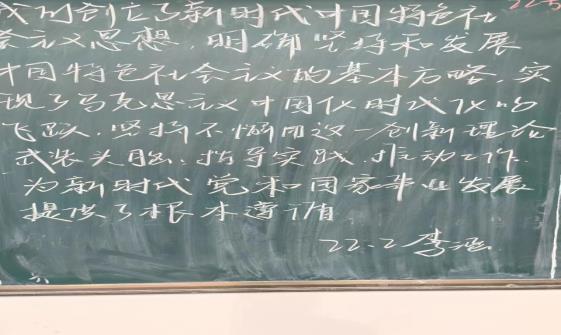 我们创立了新时代中国特色社
会主义思想，明确坚持和发展
中国特色社会主义的基本方略，实
现了马克思主义中国化时代化的
飞跃，坚持不懈用这一创新理论
武装头脑、指导实践、推动工作，
为新时代党和国家事业发展
提供了根本遵循
22.2 李涵
六